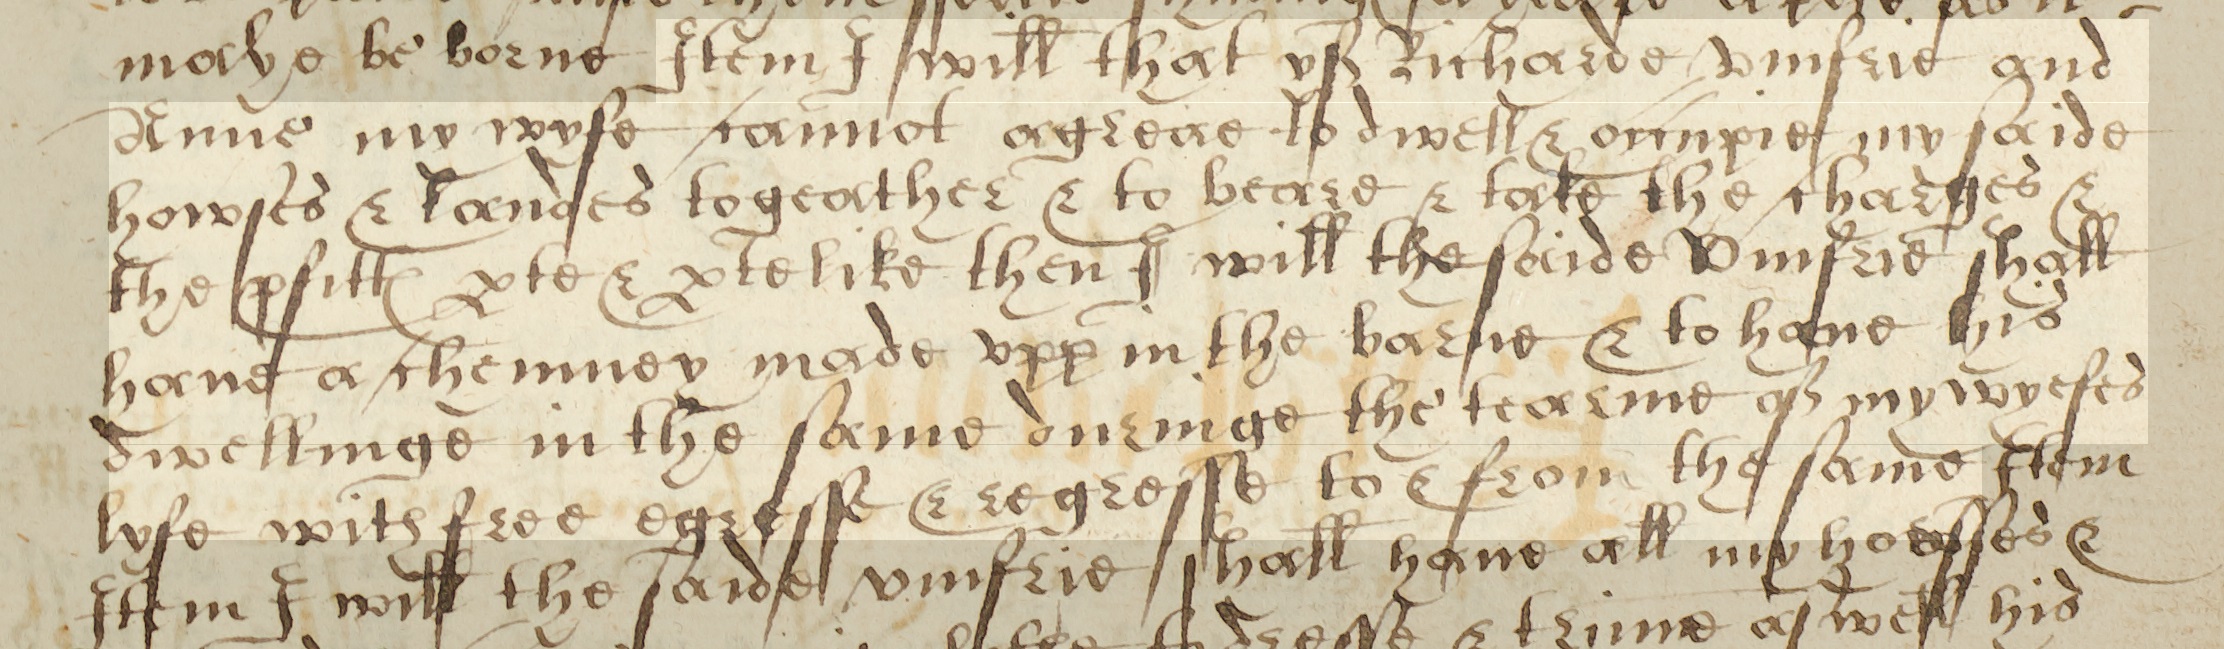 maye be borne Item I will that yf Richarde Vmfrie and
Anne my wyfe cannot agreae to dwell & occupie my saide
howses & landes togeather & to beare & take the charges &
the pfitt pte & ptelike then I will the saide Vmfrie shall
haue a chemney made vpp in the barne & to haue his
dwellinge in the same duringe the tearme of my wyefes
lyfe with free egresse & regresse to & from the same Item
Item I will the saide vmfrie shall haue all my horsses &
to dresse & trime as well his